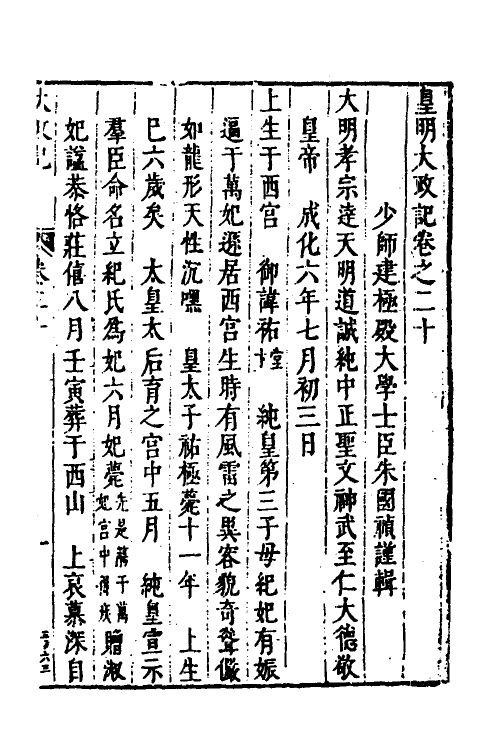 皇明大政記卷之二十
少師建極殿大學士臣朱國禎謹輯
大明孝宗達天明道誠純中正聖文神武至仁大德敬
皇帝　成化六年七月初三日
上生于西宮　御諱祐樘　純皇第三子母紀妃有娠
逼于萬妃遜居西宮生時有風雷之異容貌奇聳儼
如龍形天性沉嘿　皇太子祐極薨十一年　上生
巳六歲矣　太皇太后育之宮中五月　純皇宣示
羣臣命名立紀氏為妃六月妃薨先是蒞于萬妃宮中得疾贈淑
妃諡恭恪莊僖八月壬寅葬于西山　上哀慕深自
大政記
卷二十
一